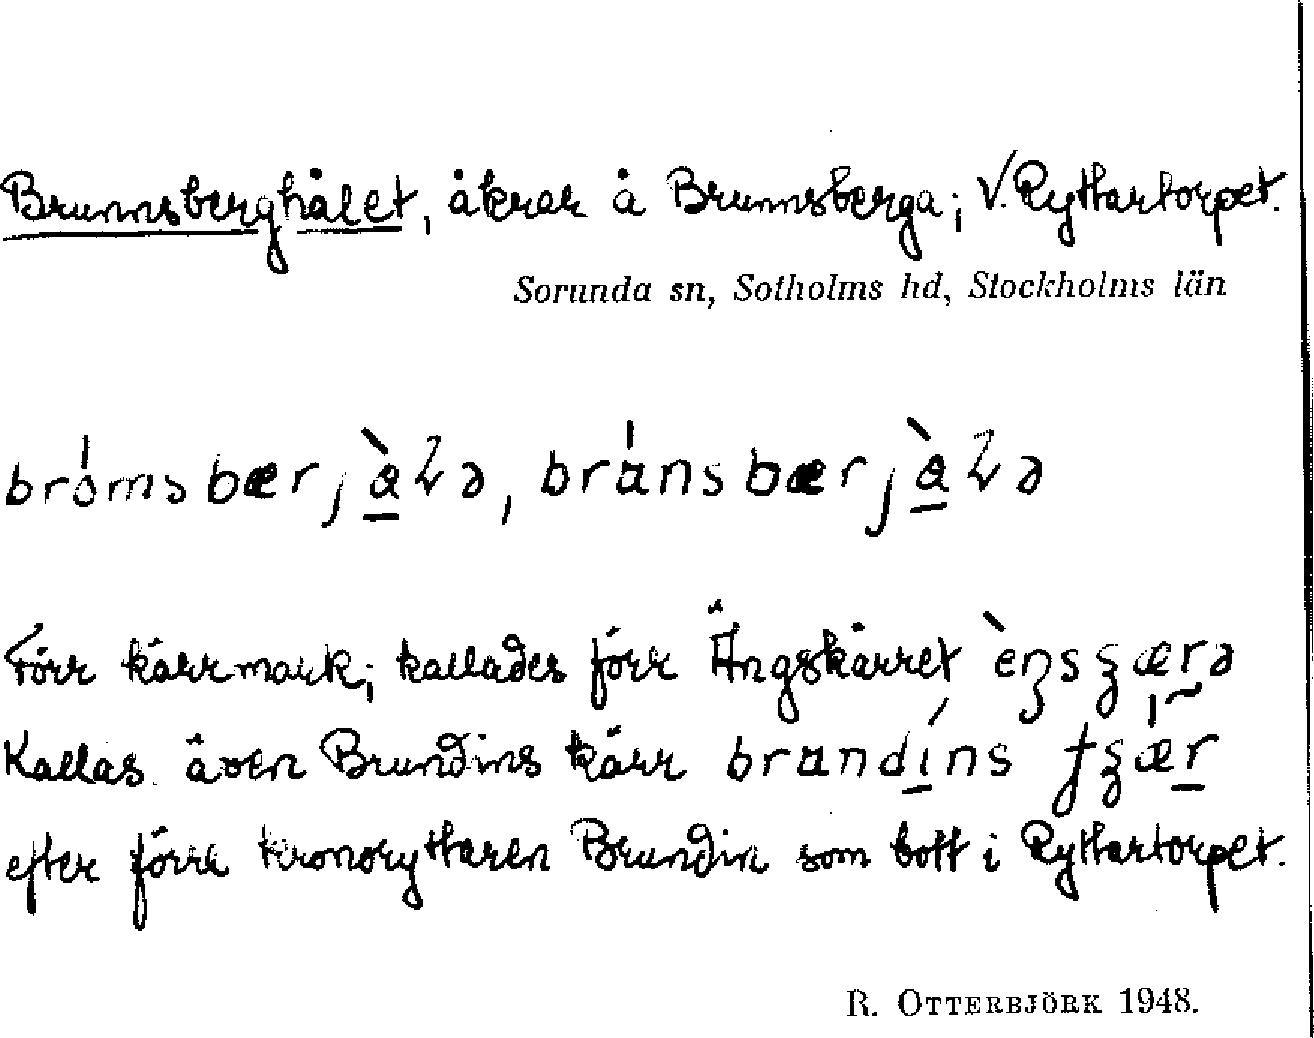 Brunnsberghålet, åkrar å Brunnsberga; V. Ryttartorpet.
Sorunda sn, Sotholms hd, Stockholms län
Förr kärrmark; kallades förr Ängskärret
Kallas även Brundins kärr
efter förre kronoryttaren Brundin som bott i Ryttartorpet.
R. OTTERBJÖRK 1948.